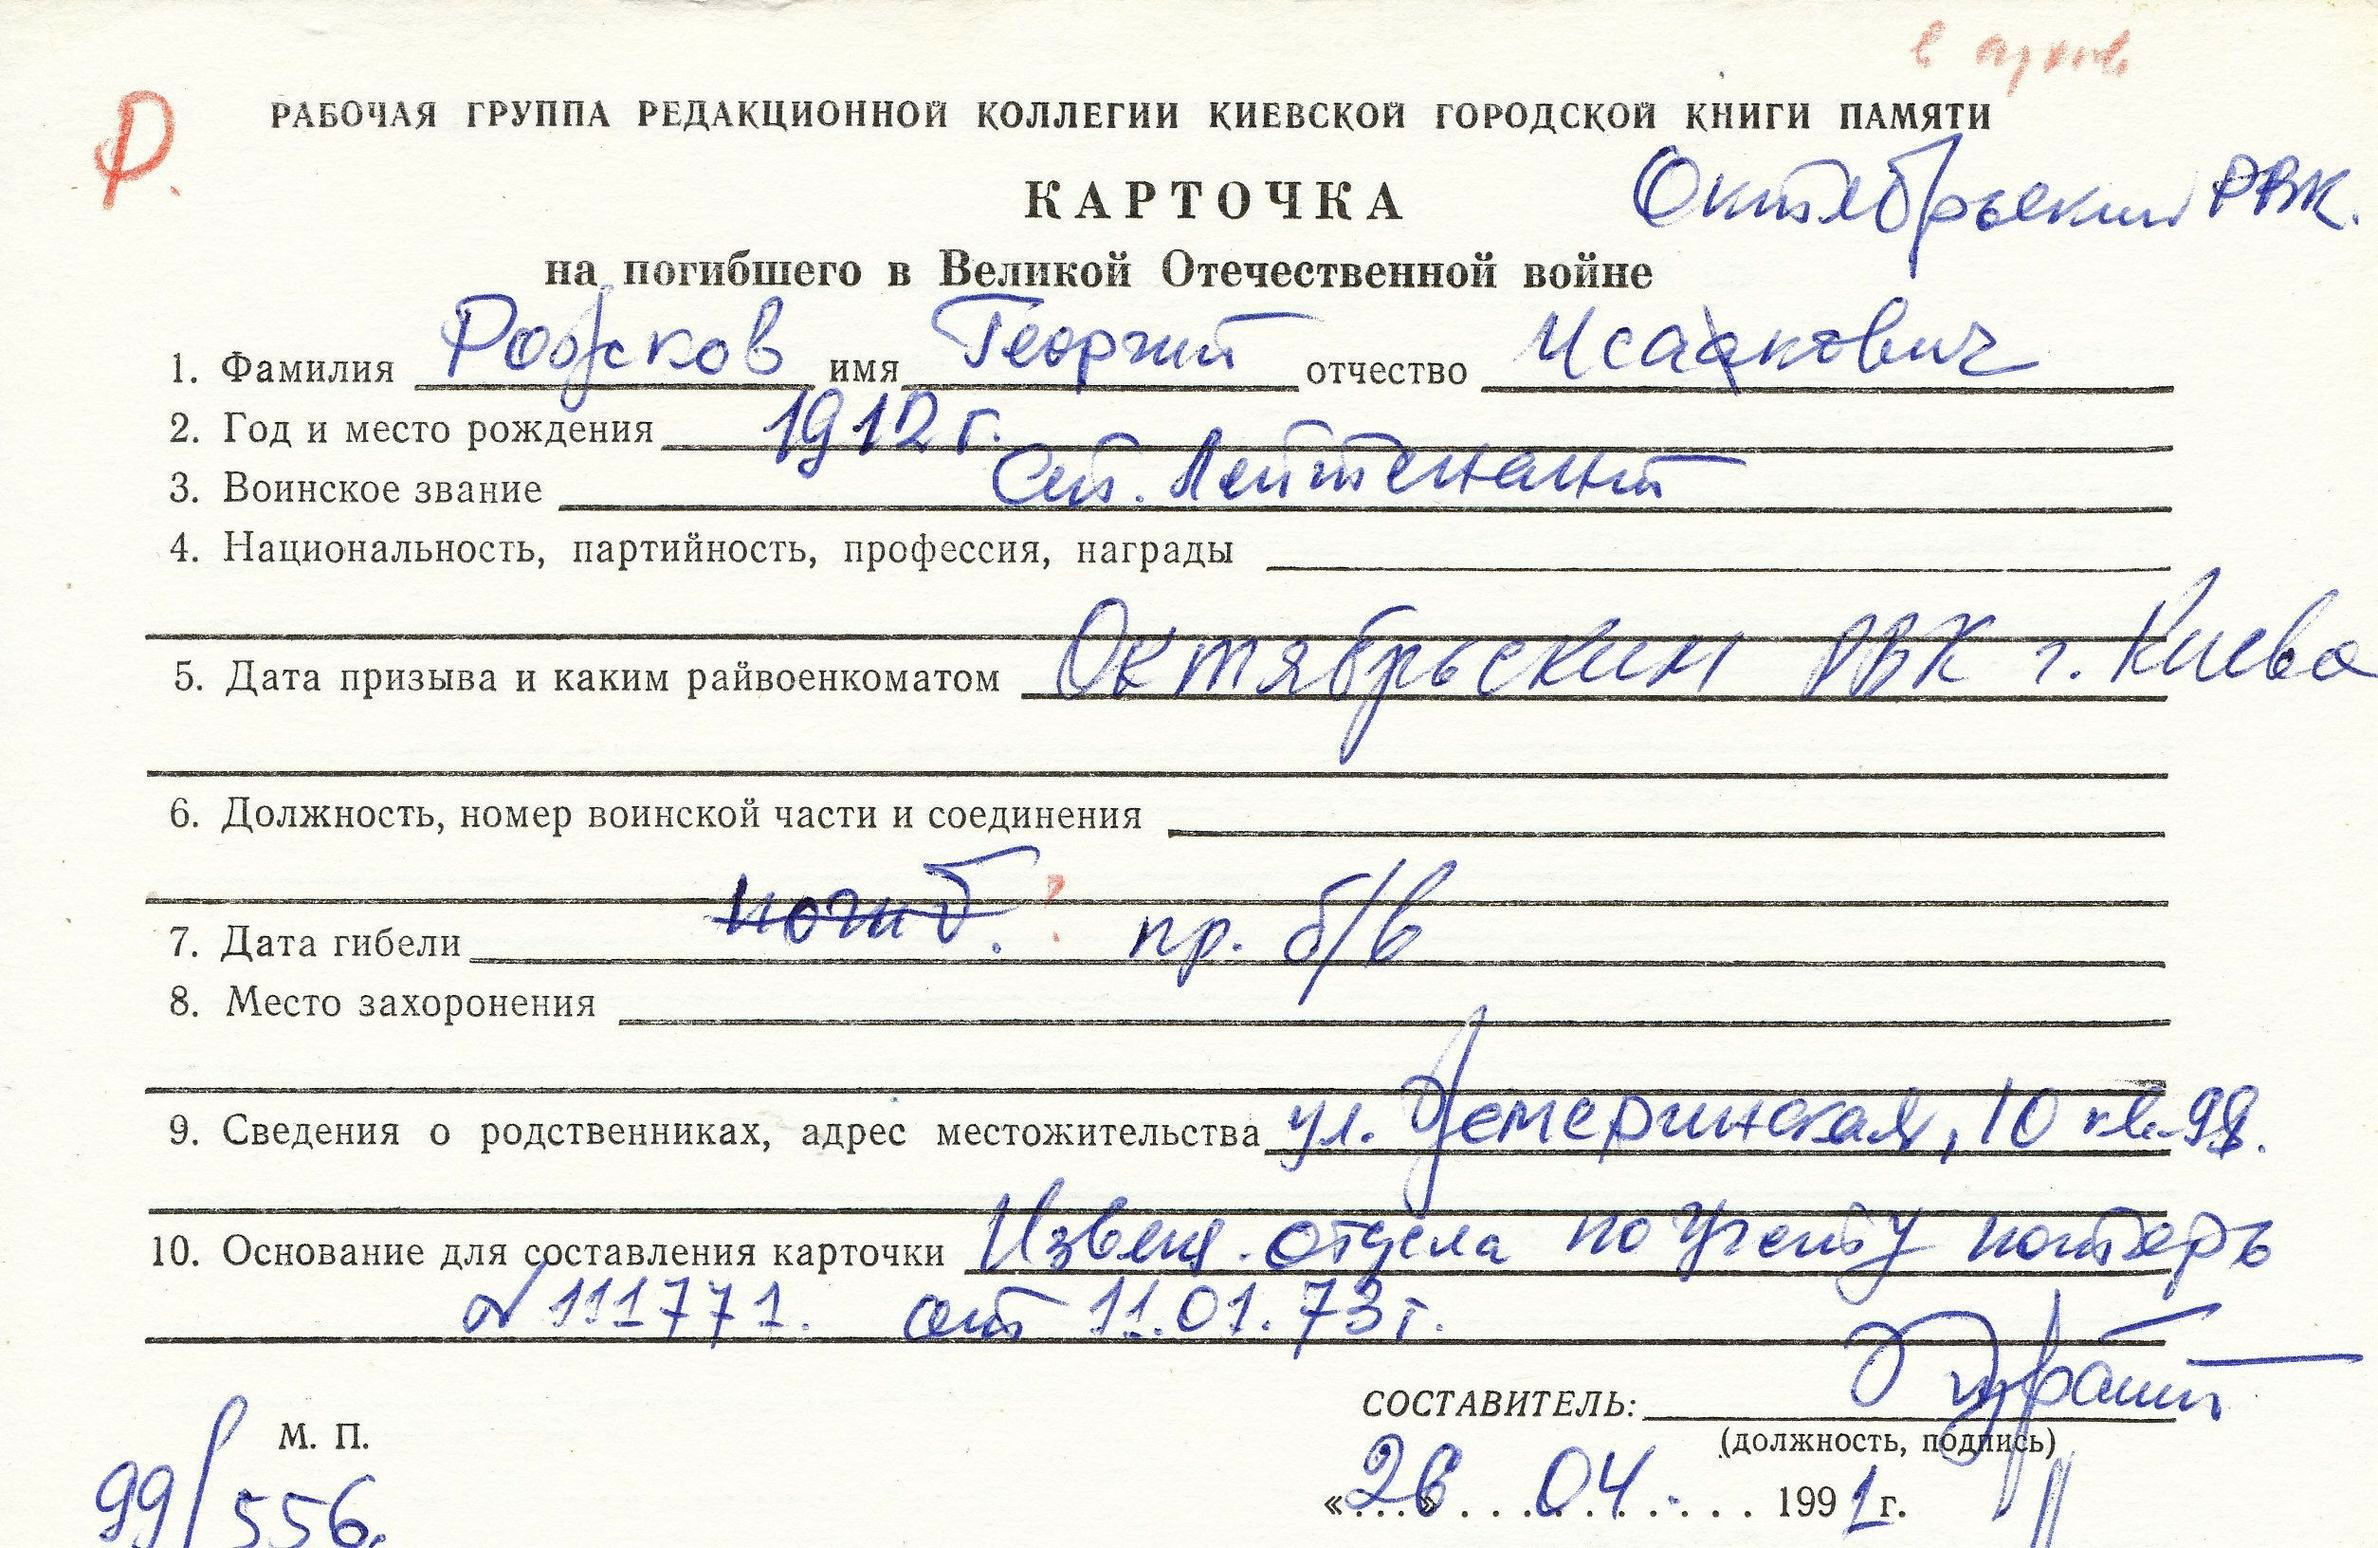 в архив
Р.
РАБОЧАЯ ГРУППА РЕДАКЦИОННОЙ КОЛЛЕГИИ КИЕВСКОЙ ГОРОДСКОЙ КНИГИ ПАМЯТИ
КАРТОЧКА Октябрьский РВК.
на погибшего в Великой Отечественной войне
1. Фамилия имя Георгий отчество Исакович
2. Год и место рождения 1912 г.
3. Воинское звание Ст. Лейтенант
4. Национальность, партийность, профессия, награды
5. Дата призыва и каким райвоенкоматом Октябрьским РВК г. Киева
6. Должность, номер воинской части и соединения
7. Дата гибели погиб. ? пр. б/в
8. Место захоронения
9. Сведения о родственниках, адрес местожительства ул. 10 кв. 98.
10. Основание для составления карточки Извещ. отдела по учету потерь
№ 111771. от 11.01.73г.
СОСТАВИТЕЛЬ:
М. П. (должность, подпись)
99/556. «26» 04. 1991 г.